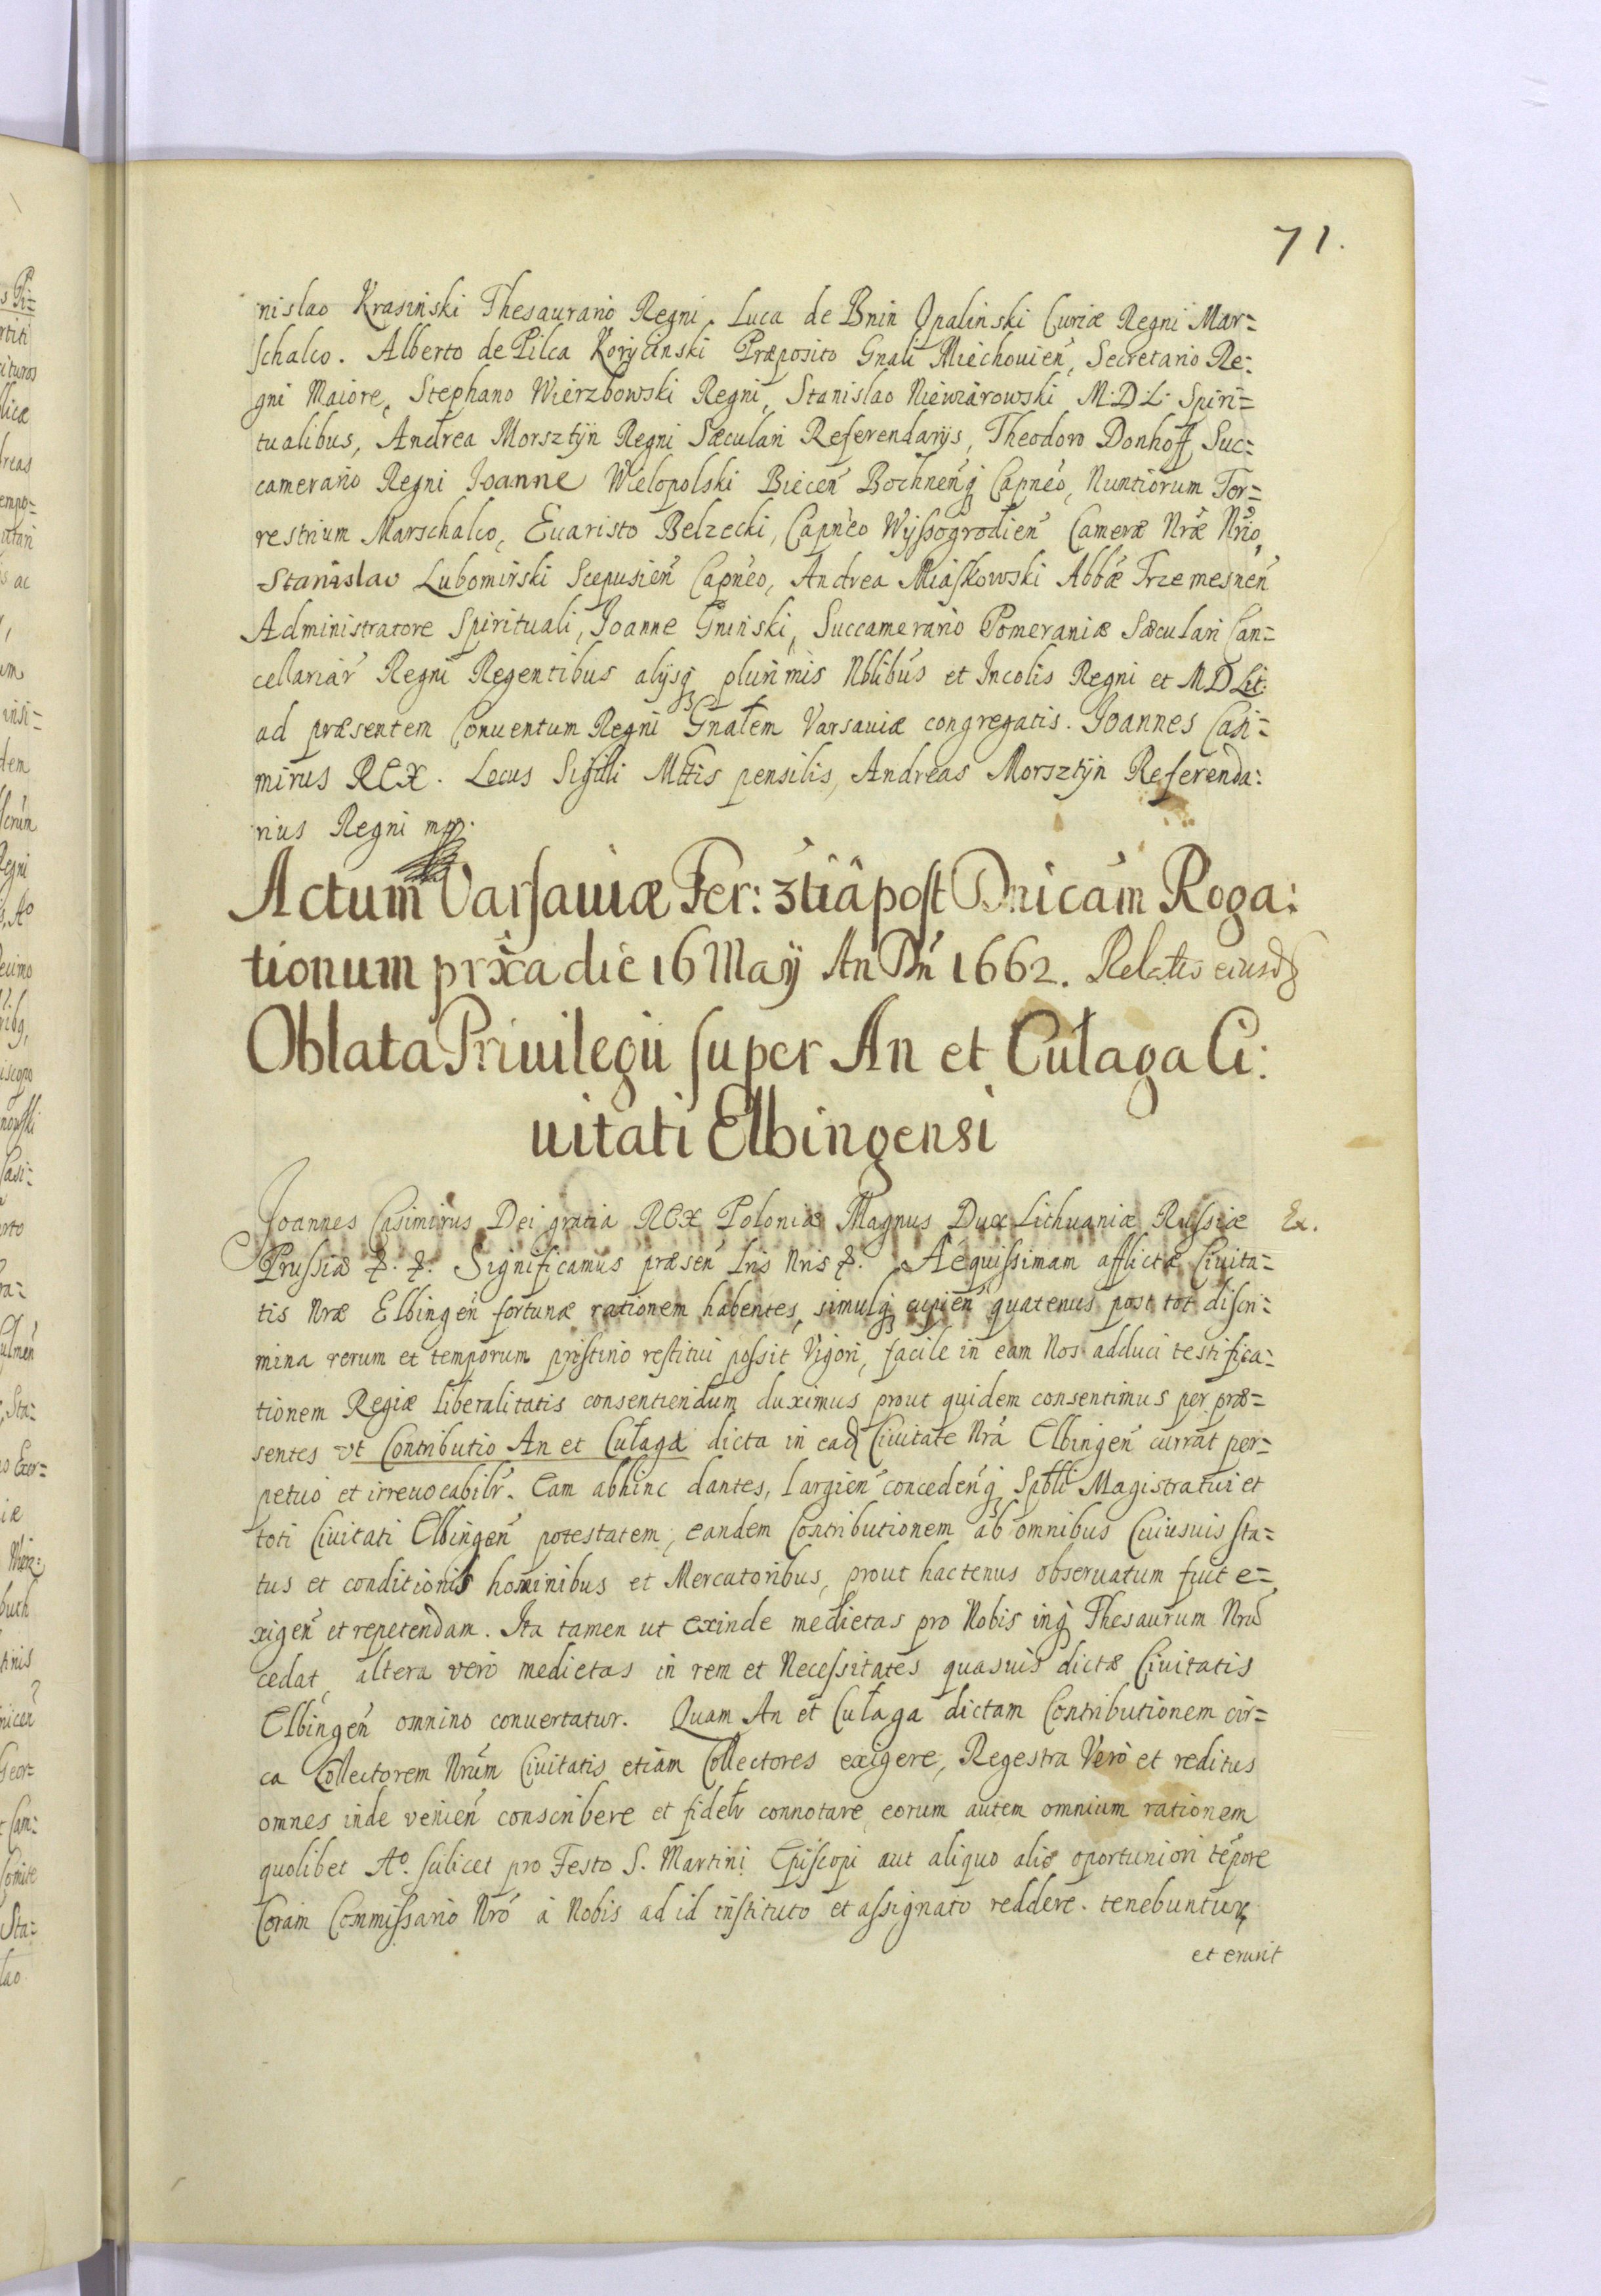 71.
nislao Krasinski Thesaurario Regni, Luca de Bnin Opalinski Curiæ Regni Mar=
schalco. Alberto de Pilca Korycinski Præposito Gnali Miechouien̄, Secretario Re=
gni Maiore, Stephano Wierzbowski Regni, Stanislao Niewiarowski M.D.L. Spiri=
tualibus, Andrea Morsztyn Regni Sæculari Referendarijs, Theodoro Donhoff Suc=
camerario Regni Joanne Wielopolski Biecen̄ Bochnen̄q Capneo, Nuntiorum Ter=
restrium Marschalco, Euaristo Belzecki, Capneo Wyssogrodien̄ Cameræ Nræ Nrio,
Stanislao Lubomirski Scepusien̄ Capneo, Andrea Miaskowski Abbæ Trzemesnen̄
Administratore Spirituali, Joanne Gninski, Succamerario Pomeraniæ Sæculari Can=
cellariar̄ Regni Regentibus alijsq plurimis Nblibus et Incolis Regni et M D Lit.
ad præsentem Conuentum Regni Gnalem Varsauiæ congregatis. Joannes Casi=
mirus REX. Locus Sigilli Mttis pensilis, Andreas Morsztyn Referenda:
rius Regni mp.
Actum Varsauiæ Fer: 3tiâ post Dnicam Roga:
tionum prxa die 16 Maij An Dn̄ 1662. Relatio eiusd
Oblata Priuilegii super An et Cułaga Ci:
uitati Elbingensi
Joannes Casimirus Dei gratia REX Poloniæ Magnus Dux Lithuaniæ Russiæ Ex.
Prussiæ &. &. Significamus præsen̄ Lris Nris &. Aequissimam afflictæ Ciuita=
tis Nræ Elbingen̄ fortunæ rationem habentes, simulq cupien̄ quatenus post tot discri=
mina rerum et temporum pristino restitui possit Vigori, facile in eam Nos adduci testifica=
tionem Regiæ liberalitatis consentiendum duximus prout quidem consentimus per præ=
sentes vt Contributio An et Cułaga dicta in ead Ciuitate Nrâ Elbingen̄ currat per=
petuo et irreuocabilr̄. Eam abhinc dantes, largien̄ conceden̄q Spbli Magistratui et
toti Ciuitati Elbingen̄ potestatem, eandem Contributionem ab omnibus Cuiusuis sta=
tus et conditionis hominibus et Mercatoribus, prout hactenus obseruatum fuit e=
xigen̄ et repetendam. Ita tamen ut exinde medietas pro Nobis inq Thesaurum Nrū
cedat, altera vero medietas in rem et Necessitates quasuis dictæ Ciuitatis
Elbingen̄ omnino conuertatur. Quam An et Cułaga dictam Contributionem cir=
ca Collectorem Nrūm Ciuitatis etiam Collectores exigere, Regestra Vero et reditus
omnes inde venien̄ conscribere et fidelr connotare, eorum autem omnium rationem
quolibet Ao. scilicet pro Festo S. Martini Episcopi aut aliquo alio oportuniori tēpore
Coram Commissario Nrō à Nobis ad id instituto et assignato reddere tenebuntur,
et erunt